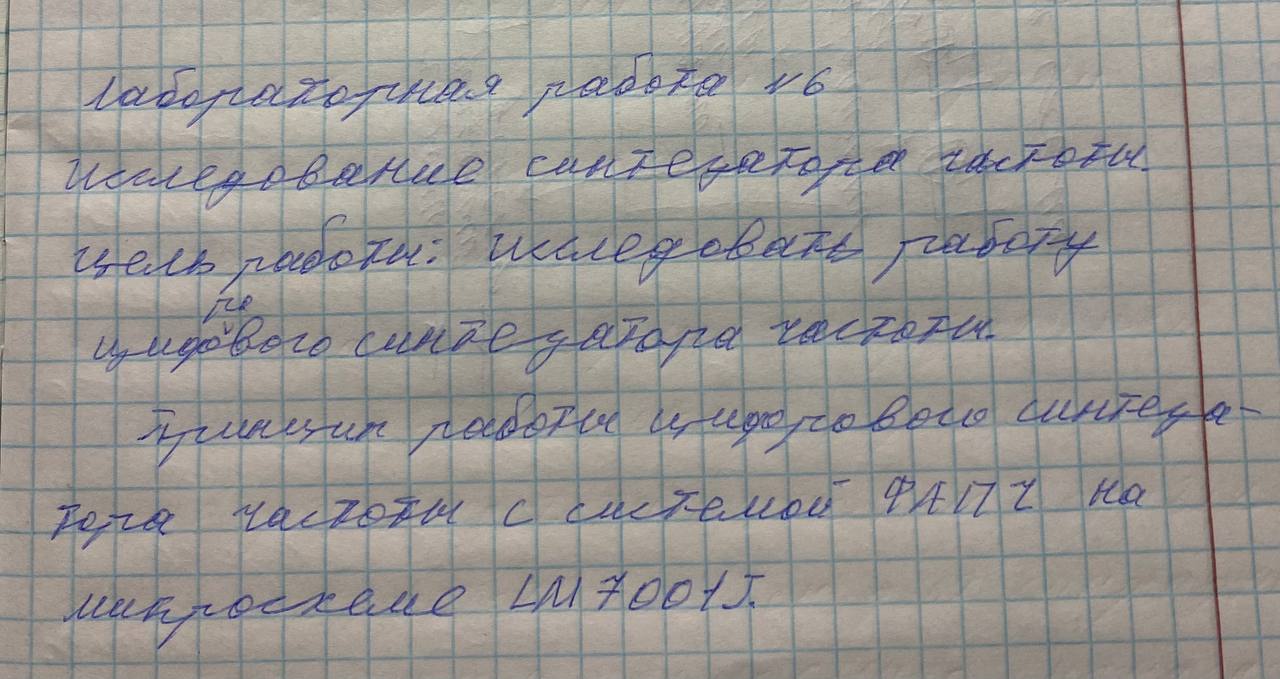 Лабораторная работа №6
Исследование синтезатора частоты.
Цель работы: Исследовать работу
цифрового синтезатора частоты.
Принцип работы цифрового синтеза-
тора частоты с системой ФАПЧ на
микросхеме LM7001J.